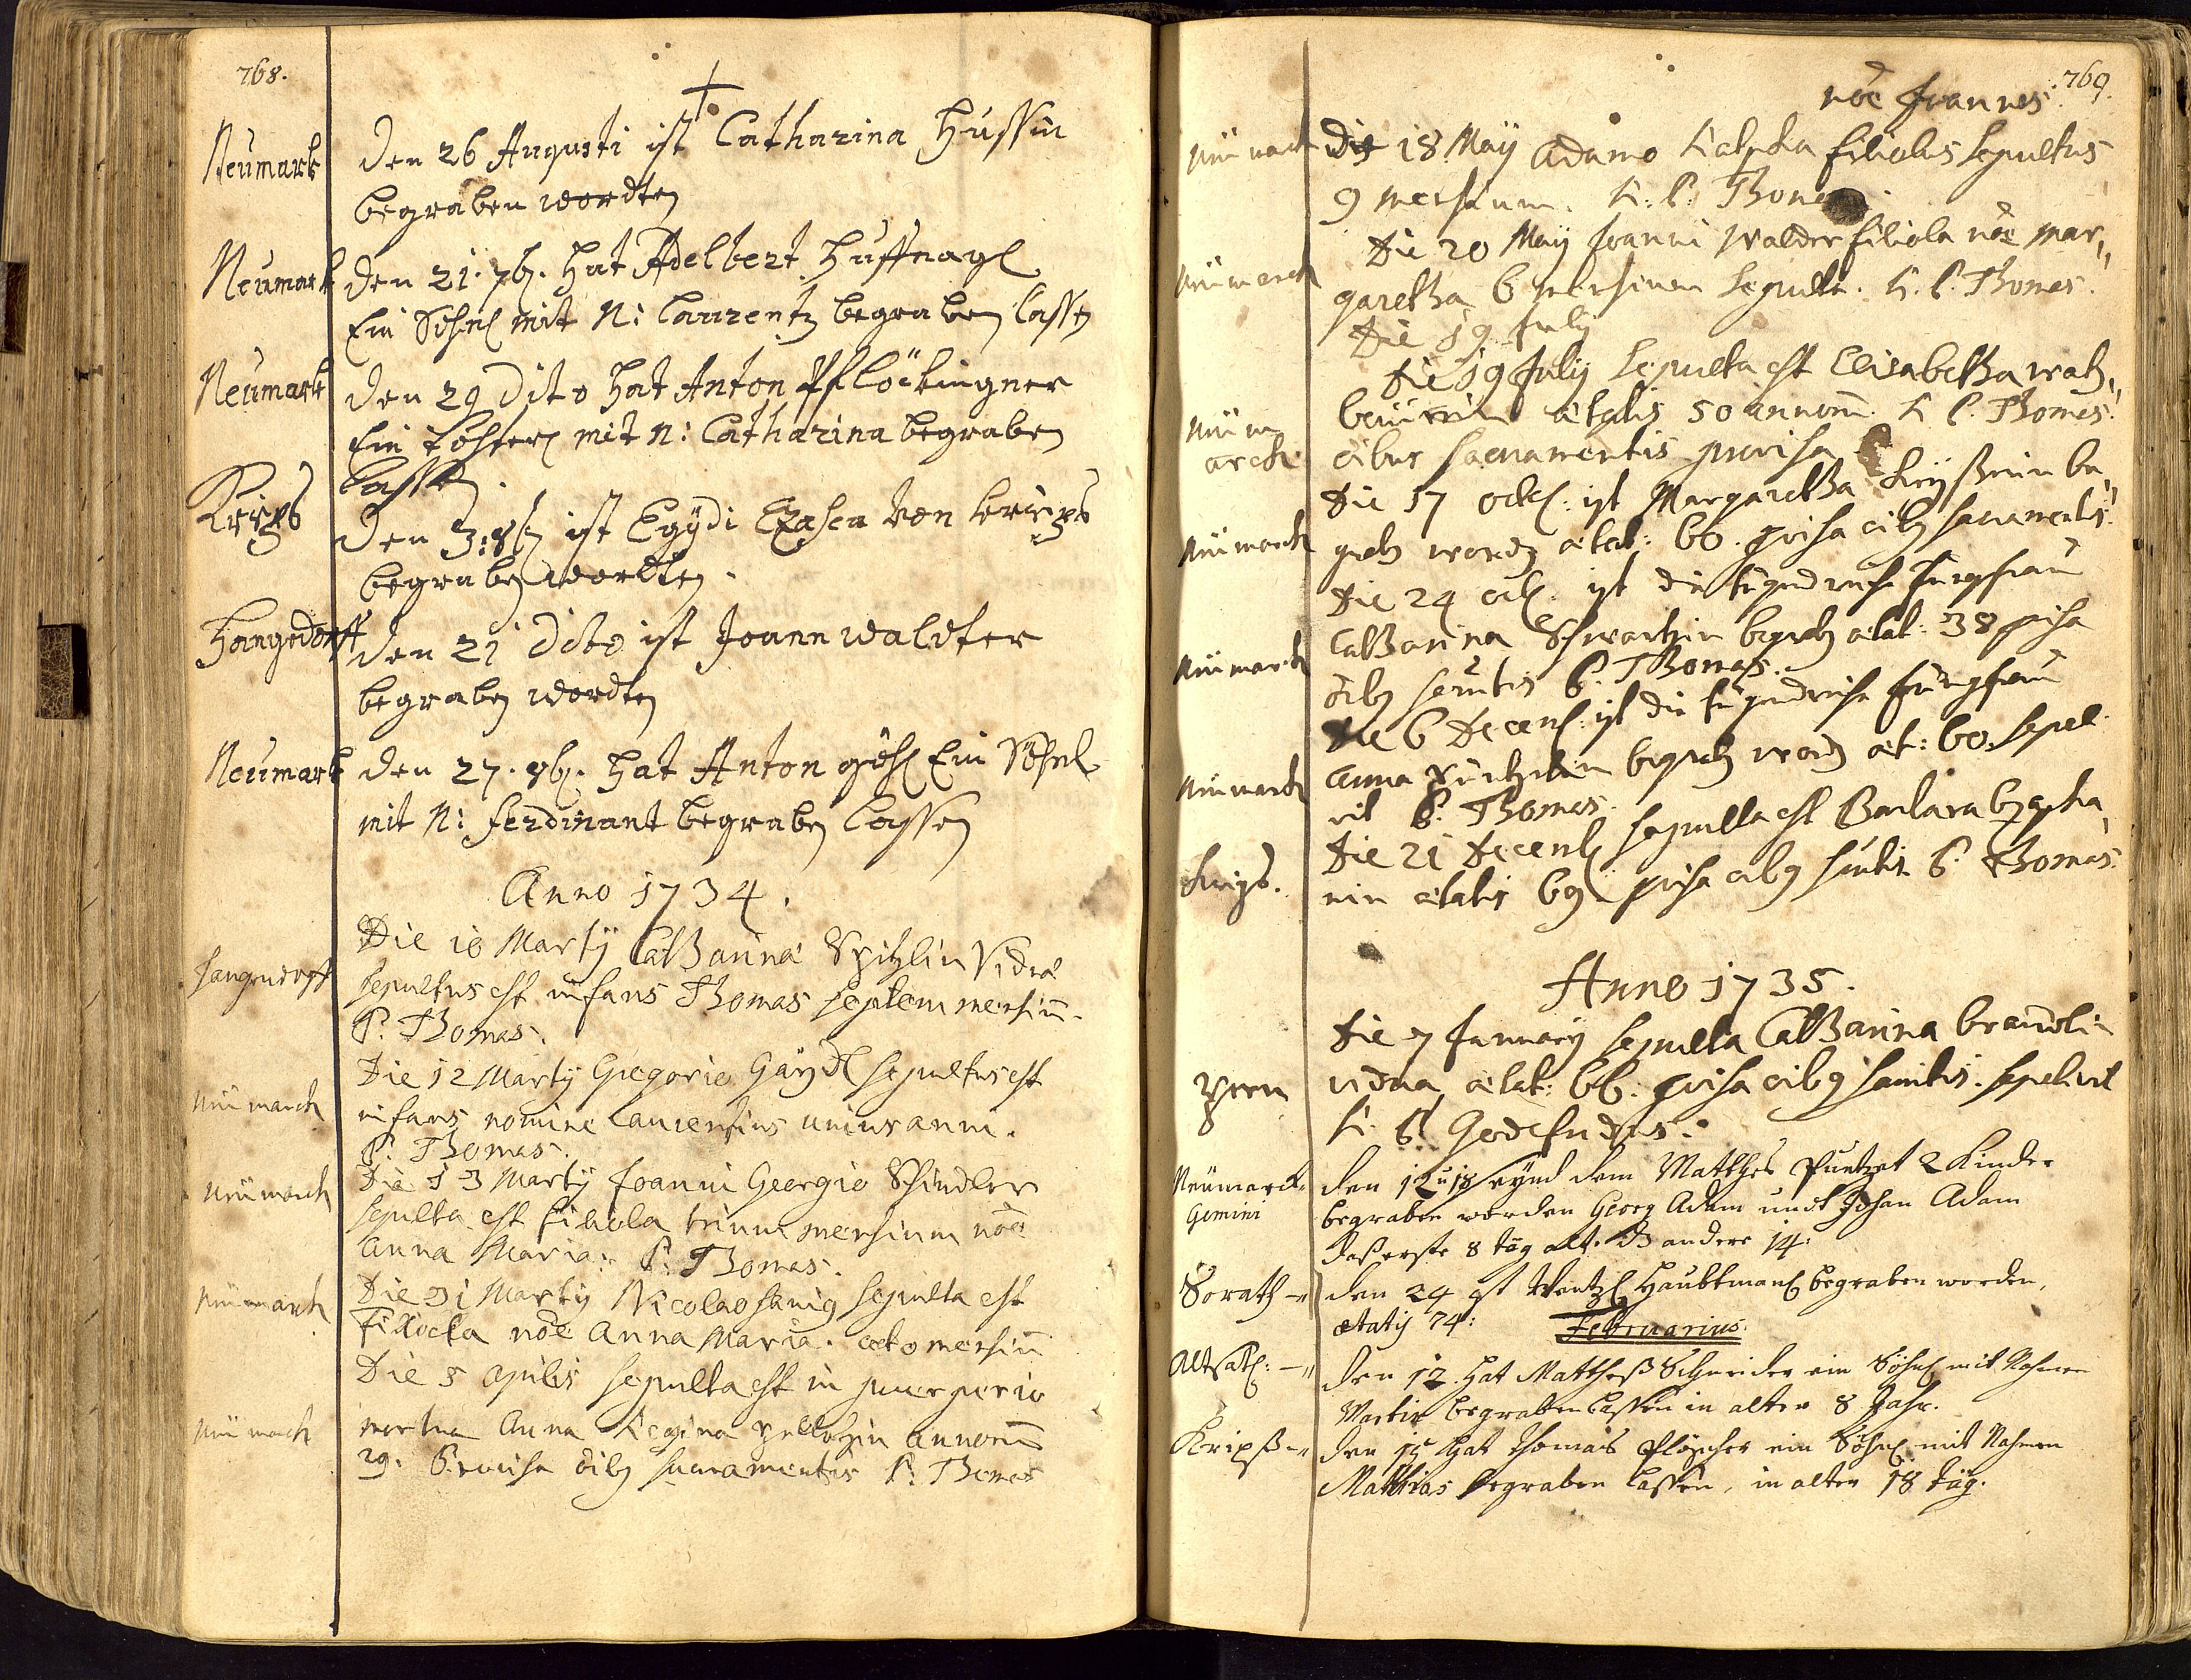 768.
Neumark
den 26 Augusti ist Catharina Hussin
begraben wordten
Neumark
den 21. 7b. hat Adelbert Huffnagl
Ein Söhnl mit N: Laurentz begraben lassen
Neumark
den 29 Dito hat Anton Pflöckingner
Ein töchterl mit N: Catharina begraben
lassen.
Krips
den 3: 8b ist Egÿdi von krips
begraben wordten.
Hangedorff
den 21 Dito ist Joann waldter
begraben wordten
Neumark
den 27. 8b. hat Anton Ein Söhnl
mit N: Ferdinant begraben lassen
Anno 1734.
Hangendorff
Die 10 Martÿ Catharina Spitzlin Vidva
sepultus est infans Thomas septem mensium.
P. Thomas.
Neümarck
Die 12 Martÿ Gregorio sepultus est
infans nomine Laurentius unius anni.
P. Thomas.
Neümarck
Die 13 Martÿ Joanni Georgio Schindler
sepulta est filiola trium mensium nõe
Anna Maria. P. Thomas.
Neümarck
Die 31 Martÿ Nicolao sepulta est
filiola nõe Anna Maria. octo mensiũ
Neümarck
Die 5 Aprilis sepulta est in puerperio
mortua Anna Regina annorũ
29. Provisa oib9 sacramentis P. Thomas
769.
nõe Joannes.
Neümarck
Die 18 Maÿ Adamo filiolus sepultus
9 mensium. R. P. Thomas
Neümarck
Die 20 Maÿ Joanni Walder filiola nõe Mar„
garetha 6 mensium sepulta. R. P. Thomas.
Die 19 Julÿ
Neüm
arck
Die 19 Julÿ sepulta est Elisabetha
ætatis 50 annorũ. R. P. Thomas.
oibus sacramentis provisa
Neümarck
Die 17 octob. ist Margaretha be„
grab. word. ætat: 60. pvisa oib9 sacramentis.
Neümarck
Die 24 octb. ist die tugendreiche Jungfrau
Catharina Schwartzin begrab. ætat: 38 pvisa
oib9 samtis P. Thomas.
Neümarck
Die 6 Decemb. ist die tugendreiche Jungfrau
Anna begrab. word. æt: 60. sepel
vit P. Thomas.
Krips.
Die 21 Decemb. sepulta est Barbara
nin ætatis 69 pvisa oib9 samtis P. Thomas.
Anno 1735.
Die 7 Januarÿ sepulta Catharina brandlin
vidua ætat: 66. pvisa oib9 samtis. sepelivit
R. P. Godefridus.
Neümarck
Gemini
den 12 u 18 seynd dem Matthes Puntzet 2 Kinder
begraben worden Georg Adam undt Johan Adam
daß erste 8 täg alt. dz andere 14:
Sorath
den 24 ist Wentzl Haubtmanl begraben worden,
ætatis 74:
Februarius.
Altsatl:
den 12. hat Mattheß Schneider ein Söhnl mit Nahmen
Martin begraben lassen in alter 8 Jahr.
Kripß
den 15 hat Thomas ein Söhnl mit Nahmen
Matthias begraben lassen, in alter 18 täg.